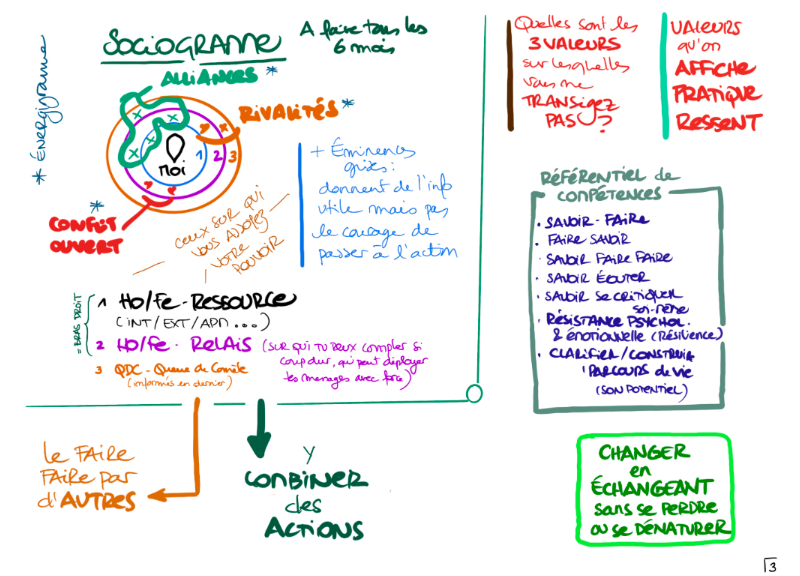 SOCIOGRAMME
A faire tous les
6 mois
* Énergigramme
ALLIANCES *
RIVALITÉS *
x x x x
1 2 3
MOI
*
CONFLIT
OUVERT
CEUX SUR QUI
VOUS APPUYEZ
VOTRE
POUVOIR
+ Éminences
grises :
donnent de l'info
utile mais pas
le courage de
passer à l'action
= BRAS DROIT
1 Ho/Fe - RESSOURCE
(INT/EXT/APM ...)
2 Ho/Fe - RELAIS (SUR QUI TU PEUX compter si
coup dur, qui peut déployer
tes messages avec force)
3 QDC - Queue de Comète
(informés en dernier)
le FAIRE
FAIRE par
d'AUTRES
Y
COMBINER
des
ACTIONS
Quelles sont les
3 VALEURS
sur lesquelles
vous ne
TRANSIGEZ
PAS ?
VALEURS
qu'on
AFFICHE
PRATIQUE
RESSENT
RÉFÉRENTIEL de
COMPÉTENCES
• SAVOIR-FAIRE
• FAIRE SAVOIR
• SAVOIR FAIRE FAIRE
• SAVOIR ÉCOUTER
• SAVOIR SE CRITIQUER
SOI-MÊME
• RÉSISTANCE PSYCHOL.
& ÉMOTIONNELLE (RÉSILIENCE)
• CLARIFIER / CONSTRUIRE
1 PARCOURS de vie
(SON POTENTIEL)
CHANGER
en
ÉCHANGEANT
sans se PERDRE
ou se DÉNATURER
3